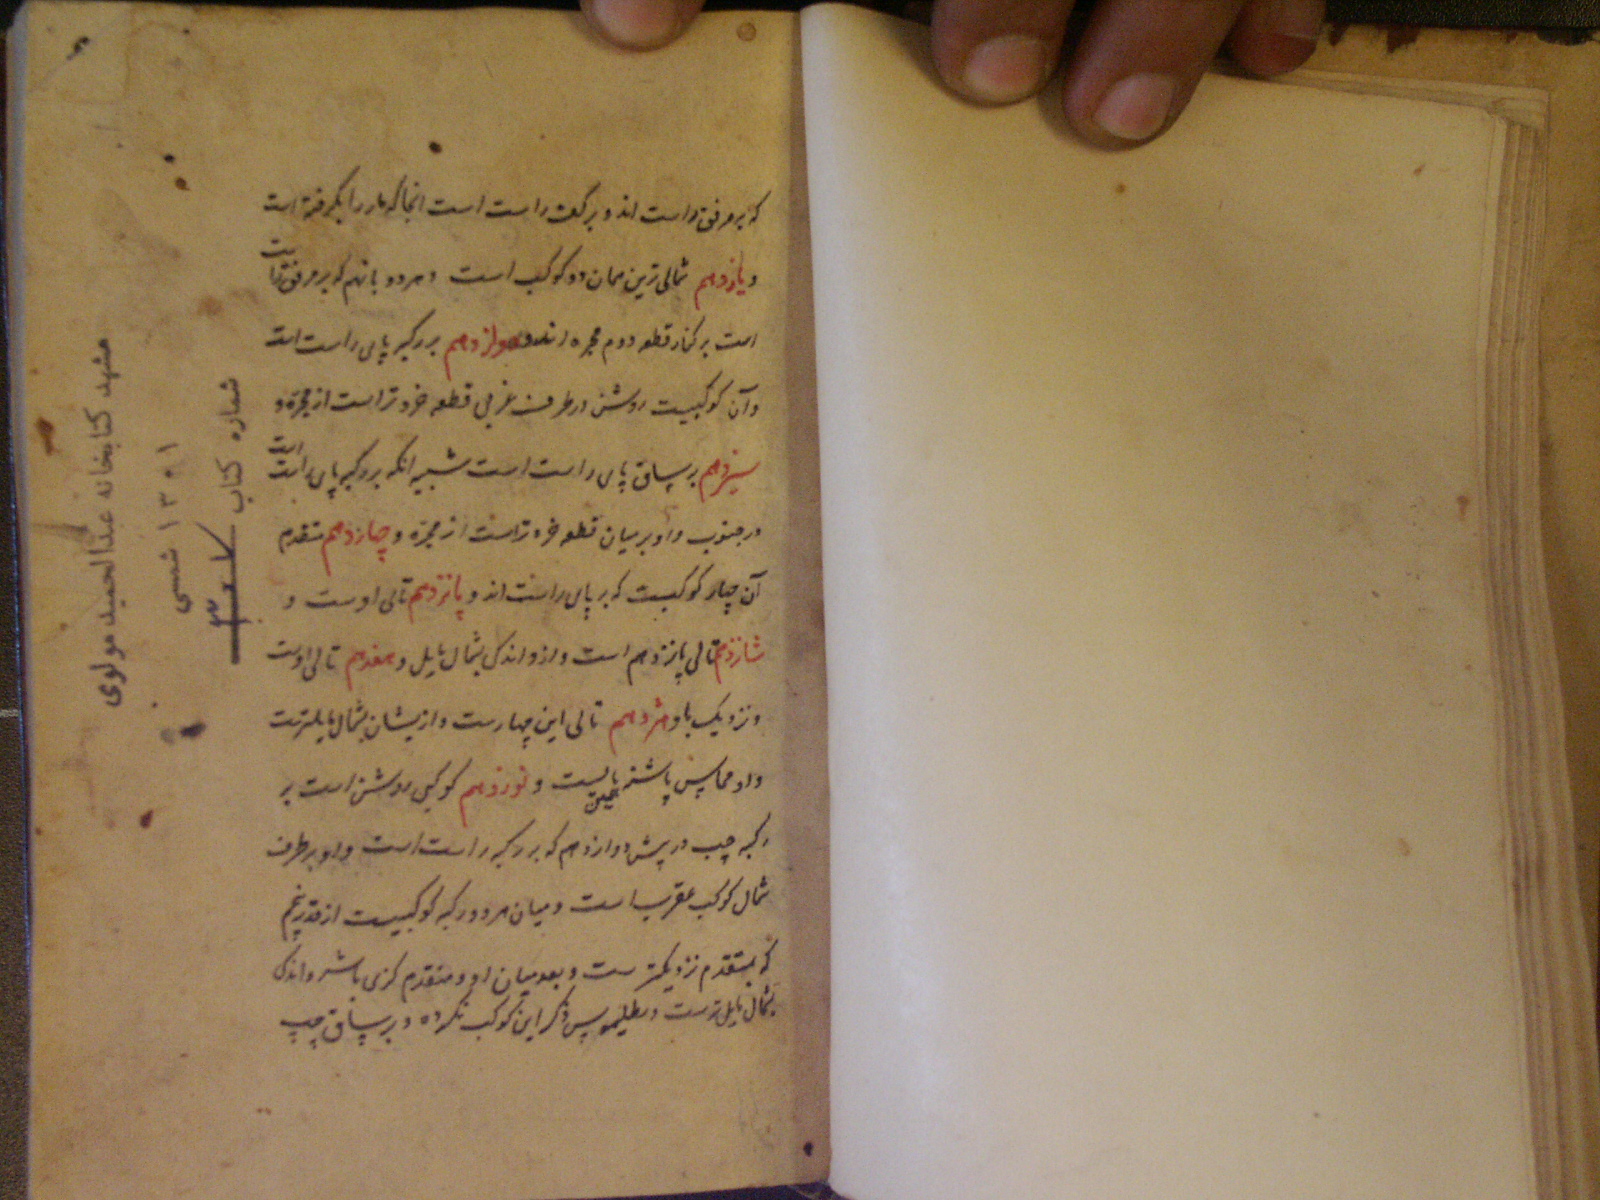 که بر مرفق راست اند و بر کعت راست است انجا که مار را بگرفته است
و یازدهم شمالی ترین همان دو کوکب است و هر دو با نهم که بر مرفق راست
است بر کنار قطعه دوم مجره اند و دوازدهم بر رکبه پای راست است
و آن کوکبیست روشن در طرف غربی قطعه خردتر است از مجره و
سیزدهم بر ساق پای راست است شبیه انکه بر رکبه پای راست است
در جنوب و او بر میان قطعه خردتر است از مجره و چهاردهم متقدم
آن چهار کوکبست که بر پای راست اند و پانزدهم تالی اوست و
شانزدهم تالی پانزدهم است و ازو اندکی بشمال مایل و هفدهم تالی اوست
و نزدیک باو هژدهم تالی این چهارست و ازیشان بشمال مایلترست
و او مماس پاشنه پایست و نوزدهم کوکبی روشن است بر
رکبه چپ در پیش دوازدهم که بر رکبه راست است و او بر طرف
شمال کوکب عقرب است و میان هر دو رکبه کوکبیست از قدر پنجم
که بمتقدم نزدیکترست و بعد میان او و متقدم کزی باشد و اندکی
بشمال مایل ترست و بطلیموس ذکر این کوکب نکرده و بر ساق چپ
مشهد کتابخانه عبدالحمید مولوی
۱۳۰۱ شمسی
شماره کتاب